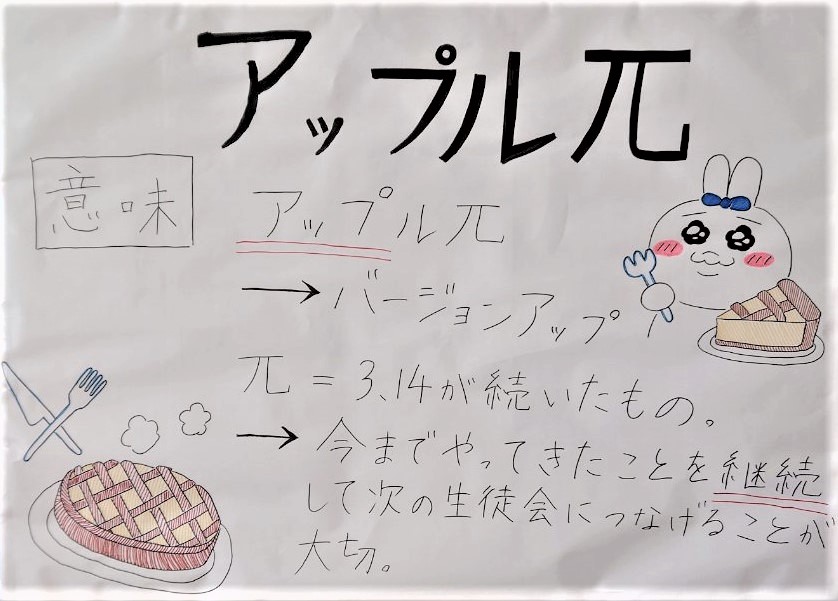 アップル兀
意味
アップル兀
→バージョンアップ
兀=3.14が続いたもの。
→今までやってきたことを継続
して次の生徒会につなげることが
大切。